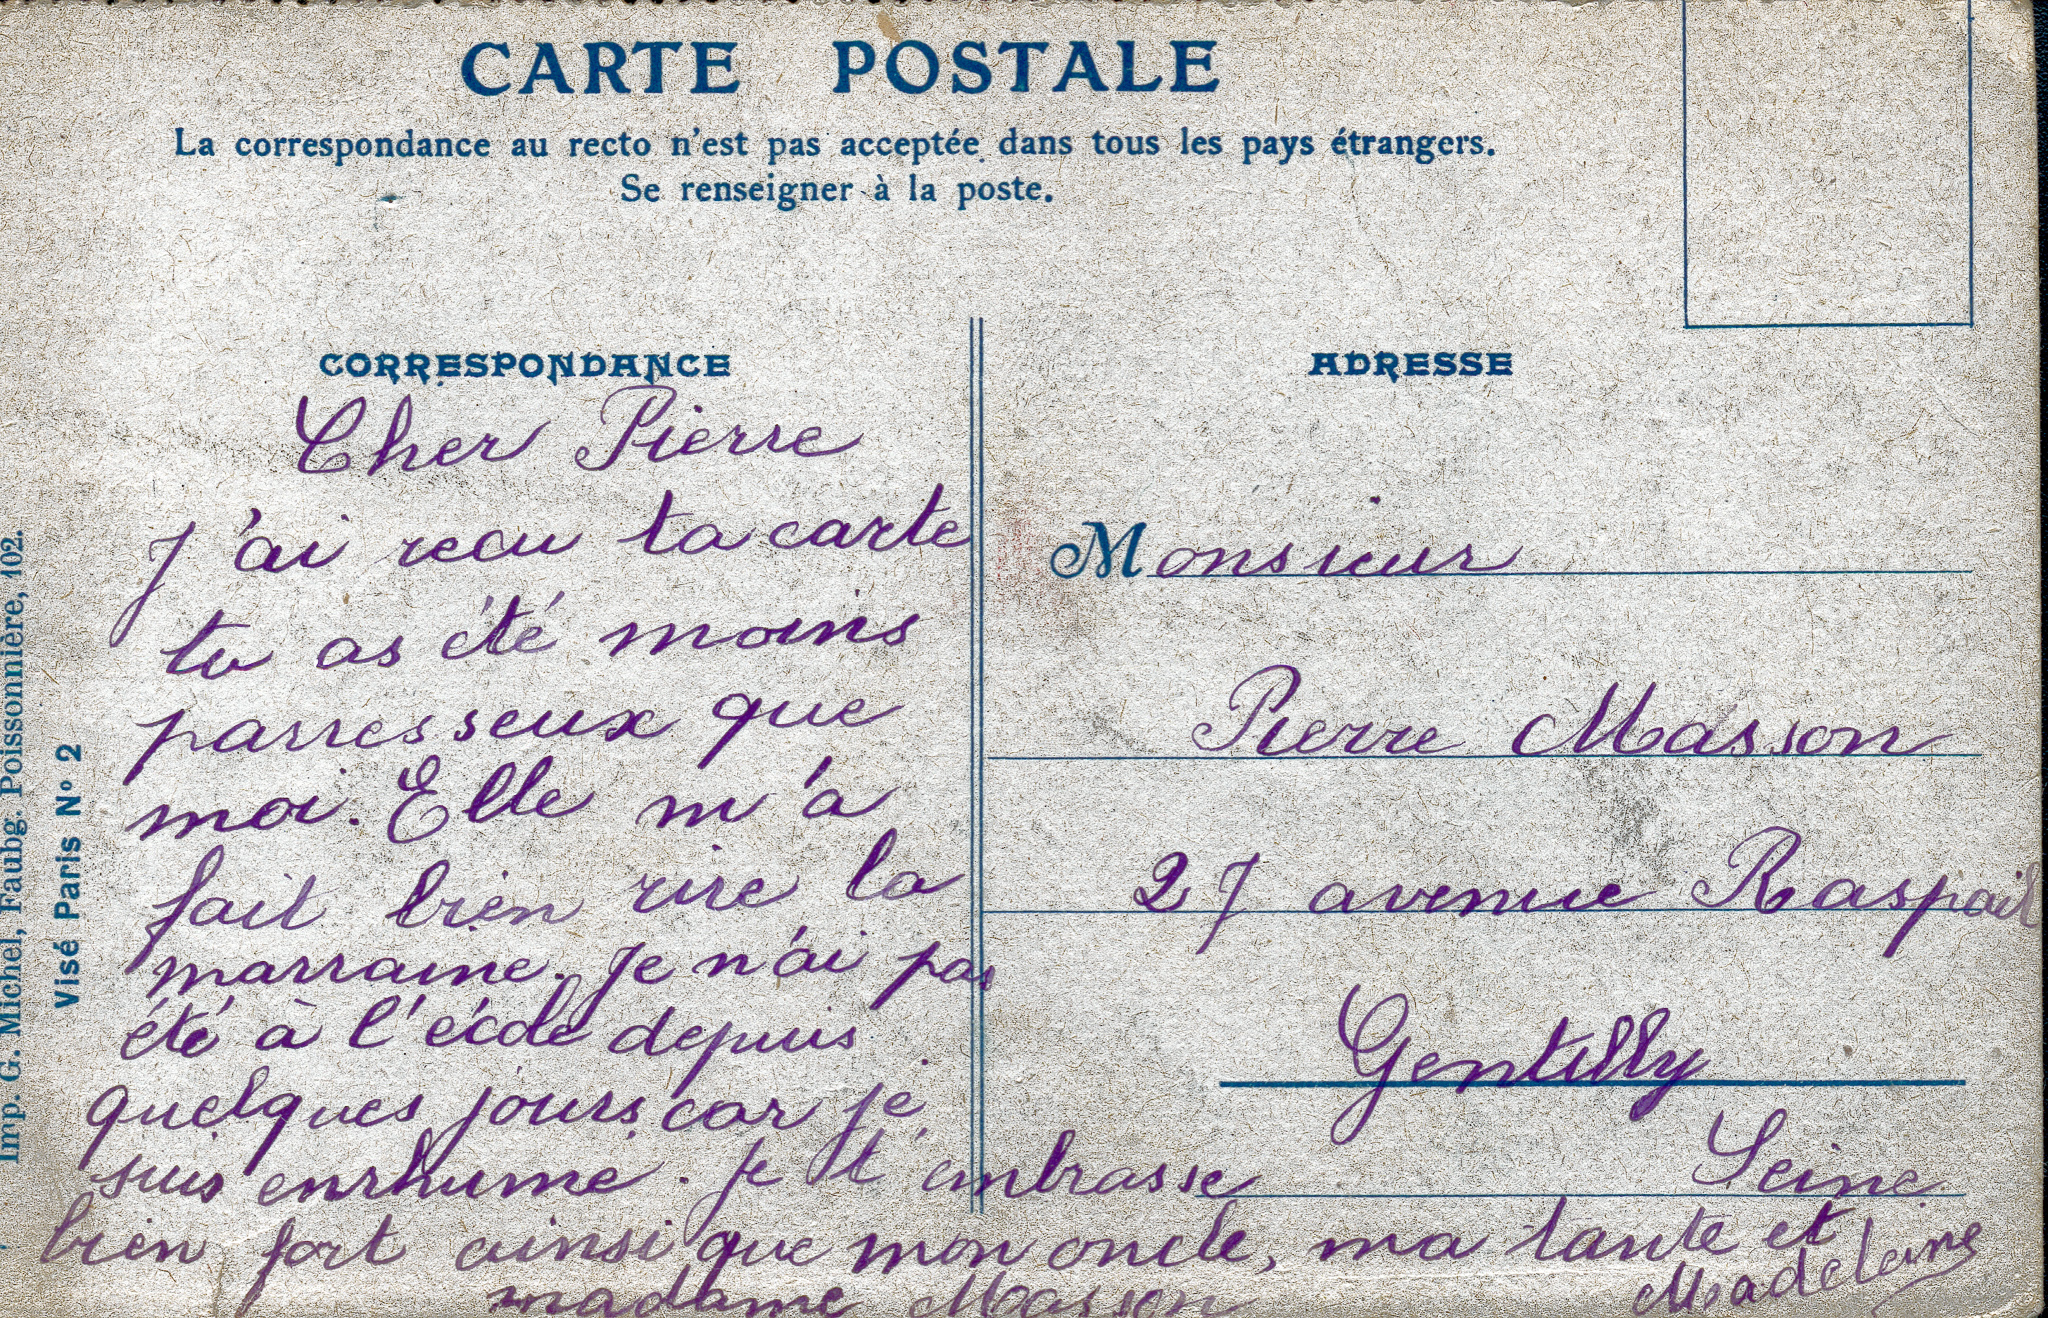 CARTE POSTALE
La correspondance au recto n'est pas acceptée dans tous les pays étrangers.
Se renseigner à la poste.
CORRESPONDANCE
Cher Pierre
J'ai recu ta carte
tu as été moins
parresseux que
moi. Elle m'a
fait bien rire la
marraine. Je n'ai pas
été à l'école depuis
quelques jours car je
suis enrhumé. Je t'embrasse
bien fort ainsi que mon oncle, ma tante et
madame Masson
Madelaine
ADRESSE
Monsieur
Pierre Masson
27 avenue Raspail
Gentilly
Seine
Imp. G. Michel, Faubg. Poissonnière, 102.
Visé Paris N° 2